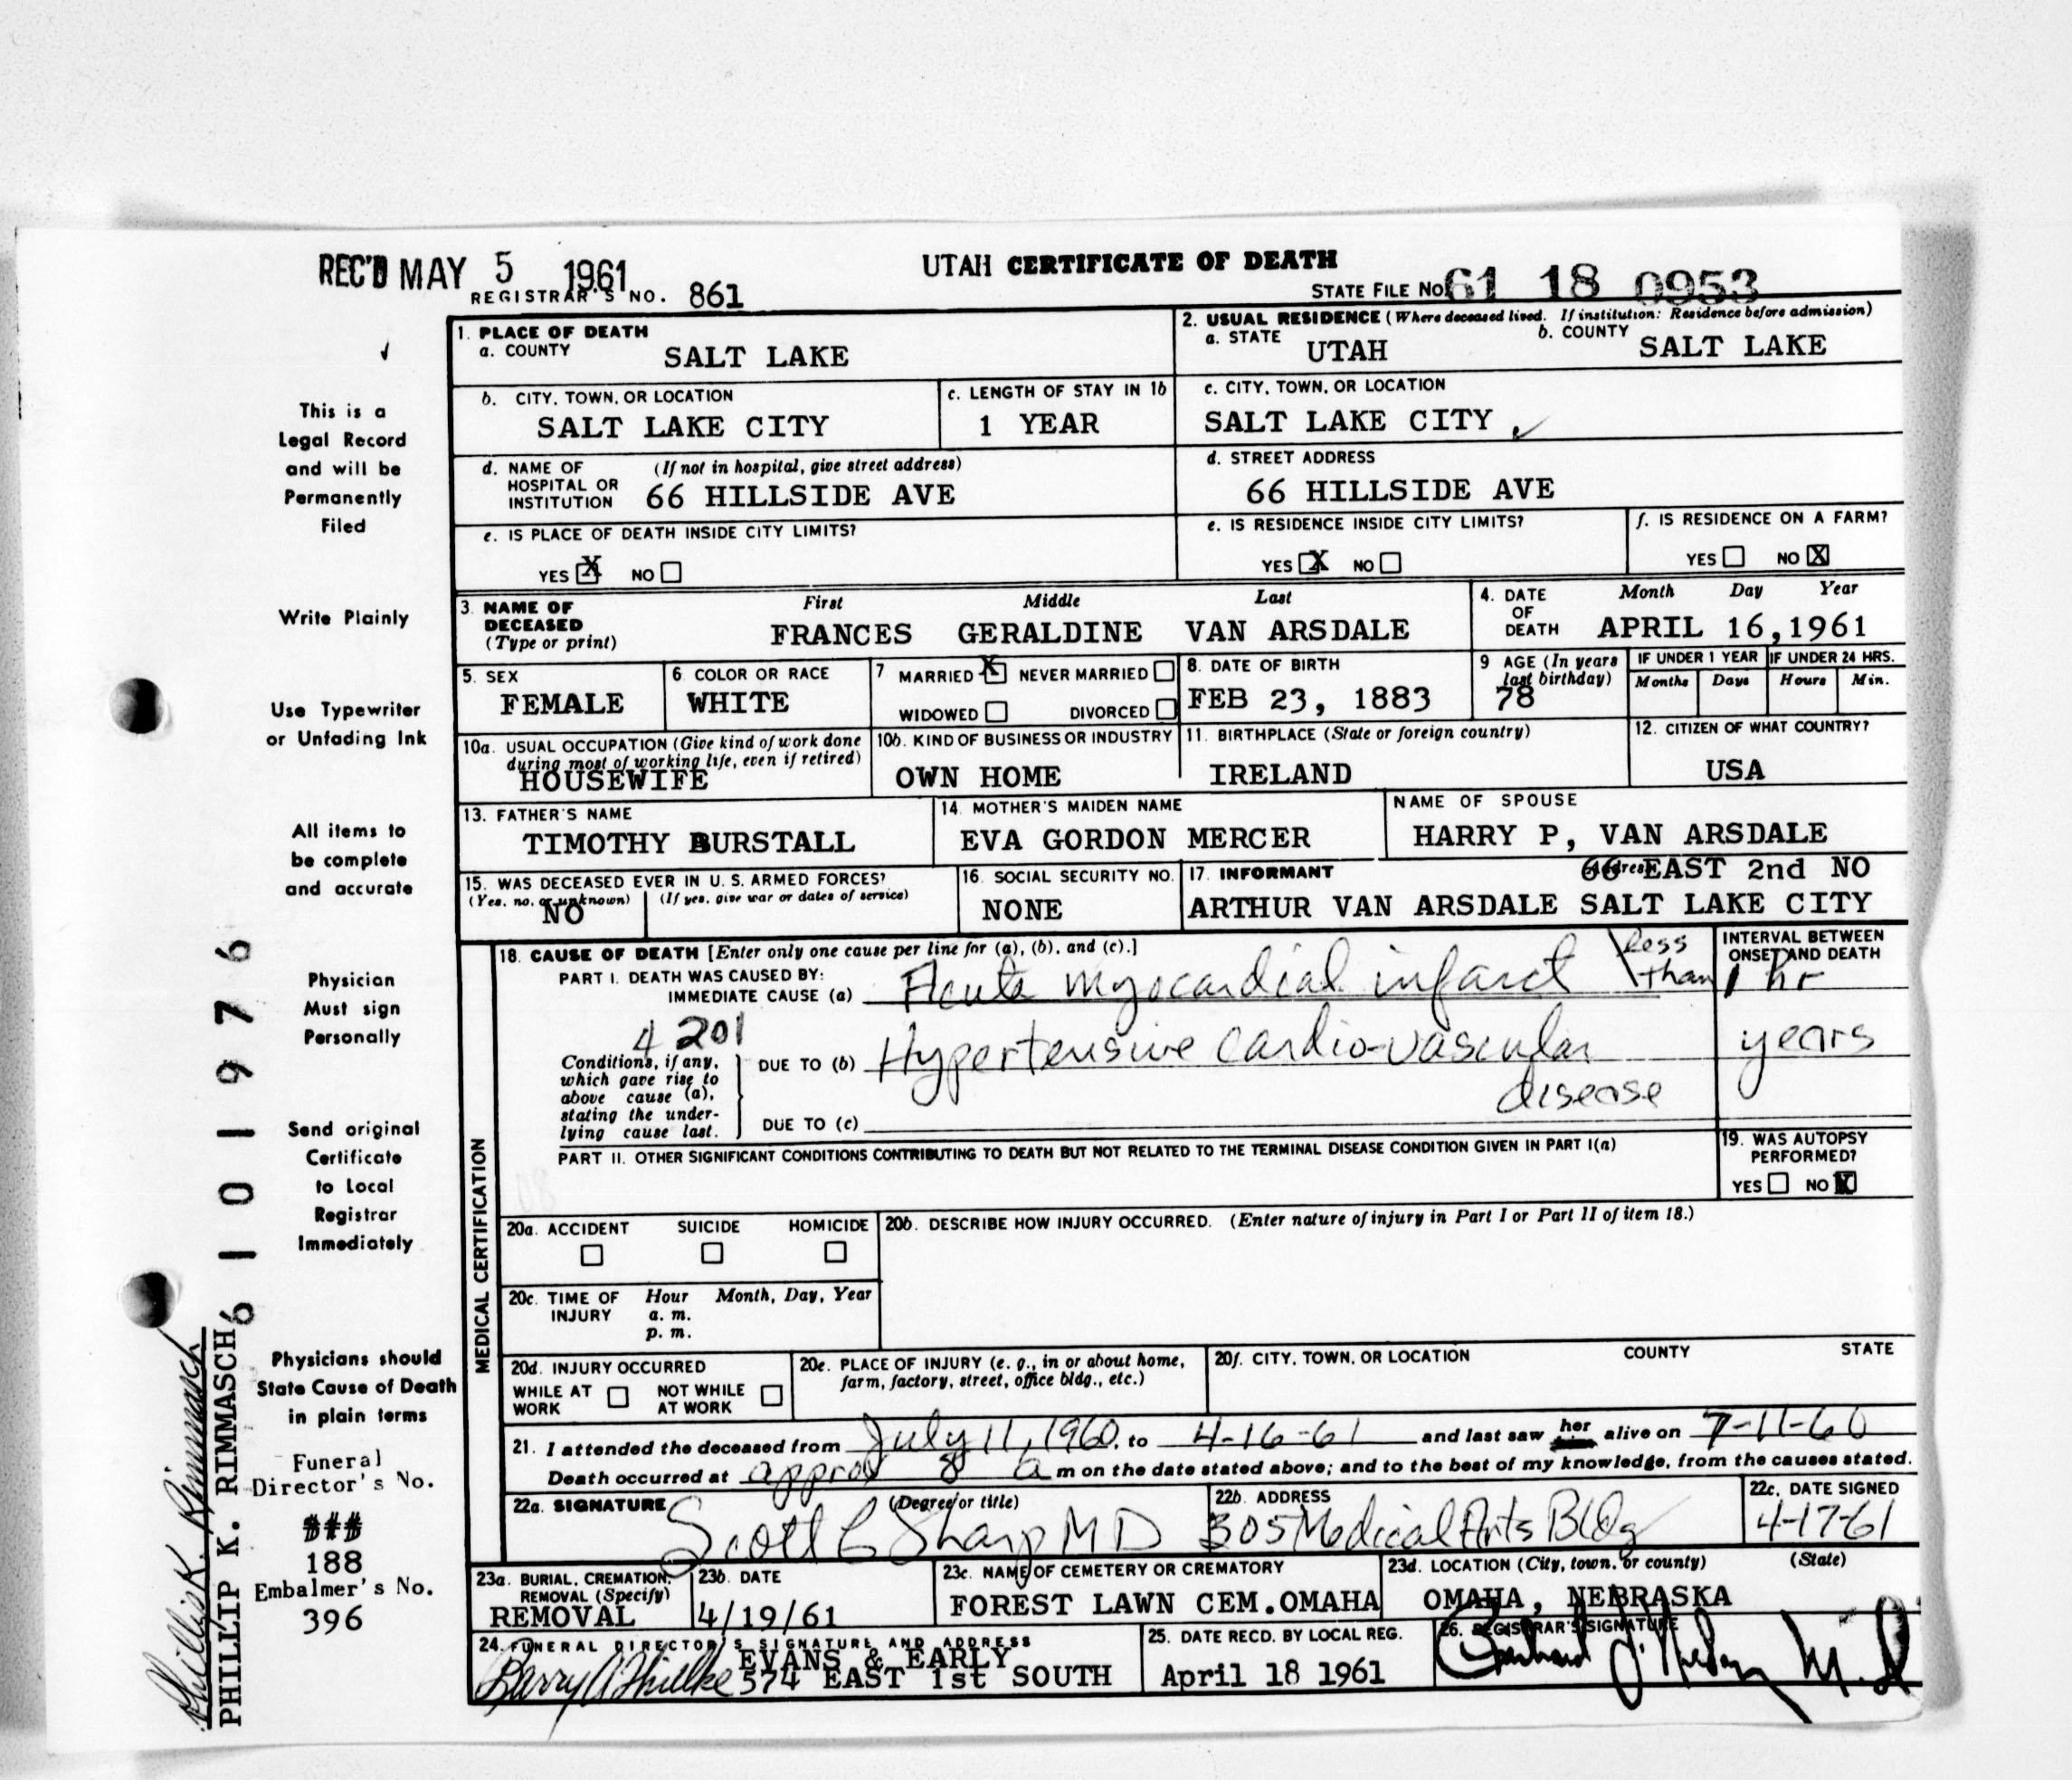 REC'D MAY 5 1961
UTAH CERTIFICATE OF DEATH
REGISTRAR'S NO. 861
STATE FILE No 61 18 0953
1. PLACE OF DEATH
a. COUNTY SALT LAKE
2. USUAL RESIDENCE (Where deceased lived. If institution: Residence before admission)
a. STATE UTAH b. COUNTY SALT LAKE
b. CITY, TOWN, OR LOCATION SALT LAKE CITY
c. LENGTH OF STAY IN 1b 1 YEAR
c. CITY, TOWN, OR LOCATION SALT LAKE CITY
d. NAME OF HOSPITAL OR INSTITUTION (If not in hospital, give street address) 66 HILLSIDE AVE
d. STREET ADDRESS 66 HILLSIDE AVE
e. IS PLACE OF DEATH INSIDE CITY LIMITS?
YES X NO
e. IS RESIDENCE INSIDE CITY LIMITS?
YES X NO
f. IS RESIDENCE ON A FARM?
YES NO X
3. NAME OF DECEASED (Type or print)
First Middle Last
FRANCES GERALDINE VAN ARSDALE
4. DATE OF DEATH Month Day Year
APRIL 16, 1961
5. SEX FEMALE
6 COLOR OR RACE WHITE
7 MARRIED X NEVER MARRIED
WIDOWED DIVORCED
8. DATE OF BIRTH FEB 23, 1883
9 AGE (In years last birthday) 78
IF UNDER 1 YEAR Months Days
IF UNDER 24 HRS. Hours Min.
10a. USUAL OCCUPATION (Give kind of work done during most of working life, even if retired) HOUSEWIFE
10b. KIND OF BUSINESS OR INDUSTRY OWN HOME
11. BIRTHPLACE (State or foreign country) IRELAND
12. CITIZEN OF WHAT COUNTRY? USA
13. FATHER'S NAME TIMOTHY BURSTALL
14. MOTHER'S MAIDEN NAME EVA GORDON MERCER
NAME OF SPOUSE HARRY P, VAN ARSDALE
15. WAS DECEASED EVER IN U. S. ARMED FORCES?
(Yes, no, or unknown) (If yes, give war or dates of service)
NO
16. SOCIAL SECURITY NO. NONE
17. INFORMANT Address 66 EAST 2nd NO
ARTHUR VAN ARSDALE SALT LAKE CITY
MEDICAL CERTIFICATION
18. CAUSE OF DEATH [Enter only one cause per line for (a), (b), and (c).]
INTERVAL BETWEEN ONSET AND DEATH
PART I. DEATH WAS CAUSED BY:
IMMEDIATE CAUSE (a) Acute myocardial infarct less than 1 hr
4201
Conditions, if any, which gave rise to above cause (a), stating the underlying cause last.
DUE TO (b) Hypertensive cardio-vascular disease years
DUE TO (c)
PART II. OTHER SIGNIFICANT CONDITIONS CONTRIBUTING TO DEATH BUT NOT RELATED TO THE TERMINAL DISEASE CONDITION GIVEN IN PART I(a)
19. WAS AUTOPSY PERFORMED?
YES NO X
20a. ACCIDENT SUICIDE HOMICIDE
20b. DESCRIBE HOW INJURY OCCURRED. (Enter nature of injury in Part I or Part II of item 18.)
20c. TIME OF INJURY Hour Month, Day, Year
a. m.
p. m.
20d. INJURY OCCURRED
WHILE AT WORK NOT WHILE AT WORK
20e. PLACE OF INJURY (e. g., in or about home, farm, factory, street, office bldg., etc.)
20f. CITY, TOWN, OR LOCATION COUNTY STATE
21. I attended the deceased from July 11, 1960, to 4-16-61 and last saw her alive on 7-11-60
Death occurred at approx 8 a m on the date stated above; and to the best of my knowledge, from the causes stated.
22a. SIGNATURE (Degree or title) Scott C Sharp MD
22b. ADDRESS 305 Medical Arts Bldg
22c. DATE SIGNED 4-17-61
23a. BURIAL, CREMATION, REMOVAL (Specify) REMOVAL
23b. DATE 4/19/61
23c. NAME OF CEMETERY OR CREMATORY FOREST LAWN CEM. OMAHA
23d. LOCATION (City, town, or county) (State) OMAHA, NEBRASKA
24. FUNERAL DIRECTOR'S SIGNATURE AND ADDRESS
EVANS & EARLY
574 EAST 1st SOUTH
25. DATE RECD. BY LOCAL REG. April 18 1961
26. REGISTRAR'S SIGNATURE
This is a
Legal Record
and will be
Permanently
Filed
Write Plainly
Use Typewriter
or Unfading Ink
All items to
be complete
and accurate
Physician
Must sign
Personally
Send original
Certificate
to Local
Registrar
Immediately
Physicians should
State Cause of Death
in plain terms
Funeral
Director's No.
188
Embalmer's No.
396
6101976
PHILLIP K. RIMMASCH
Phillip K. Rimmasch